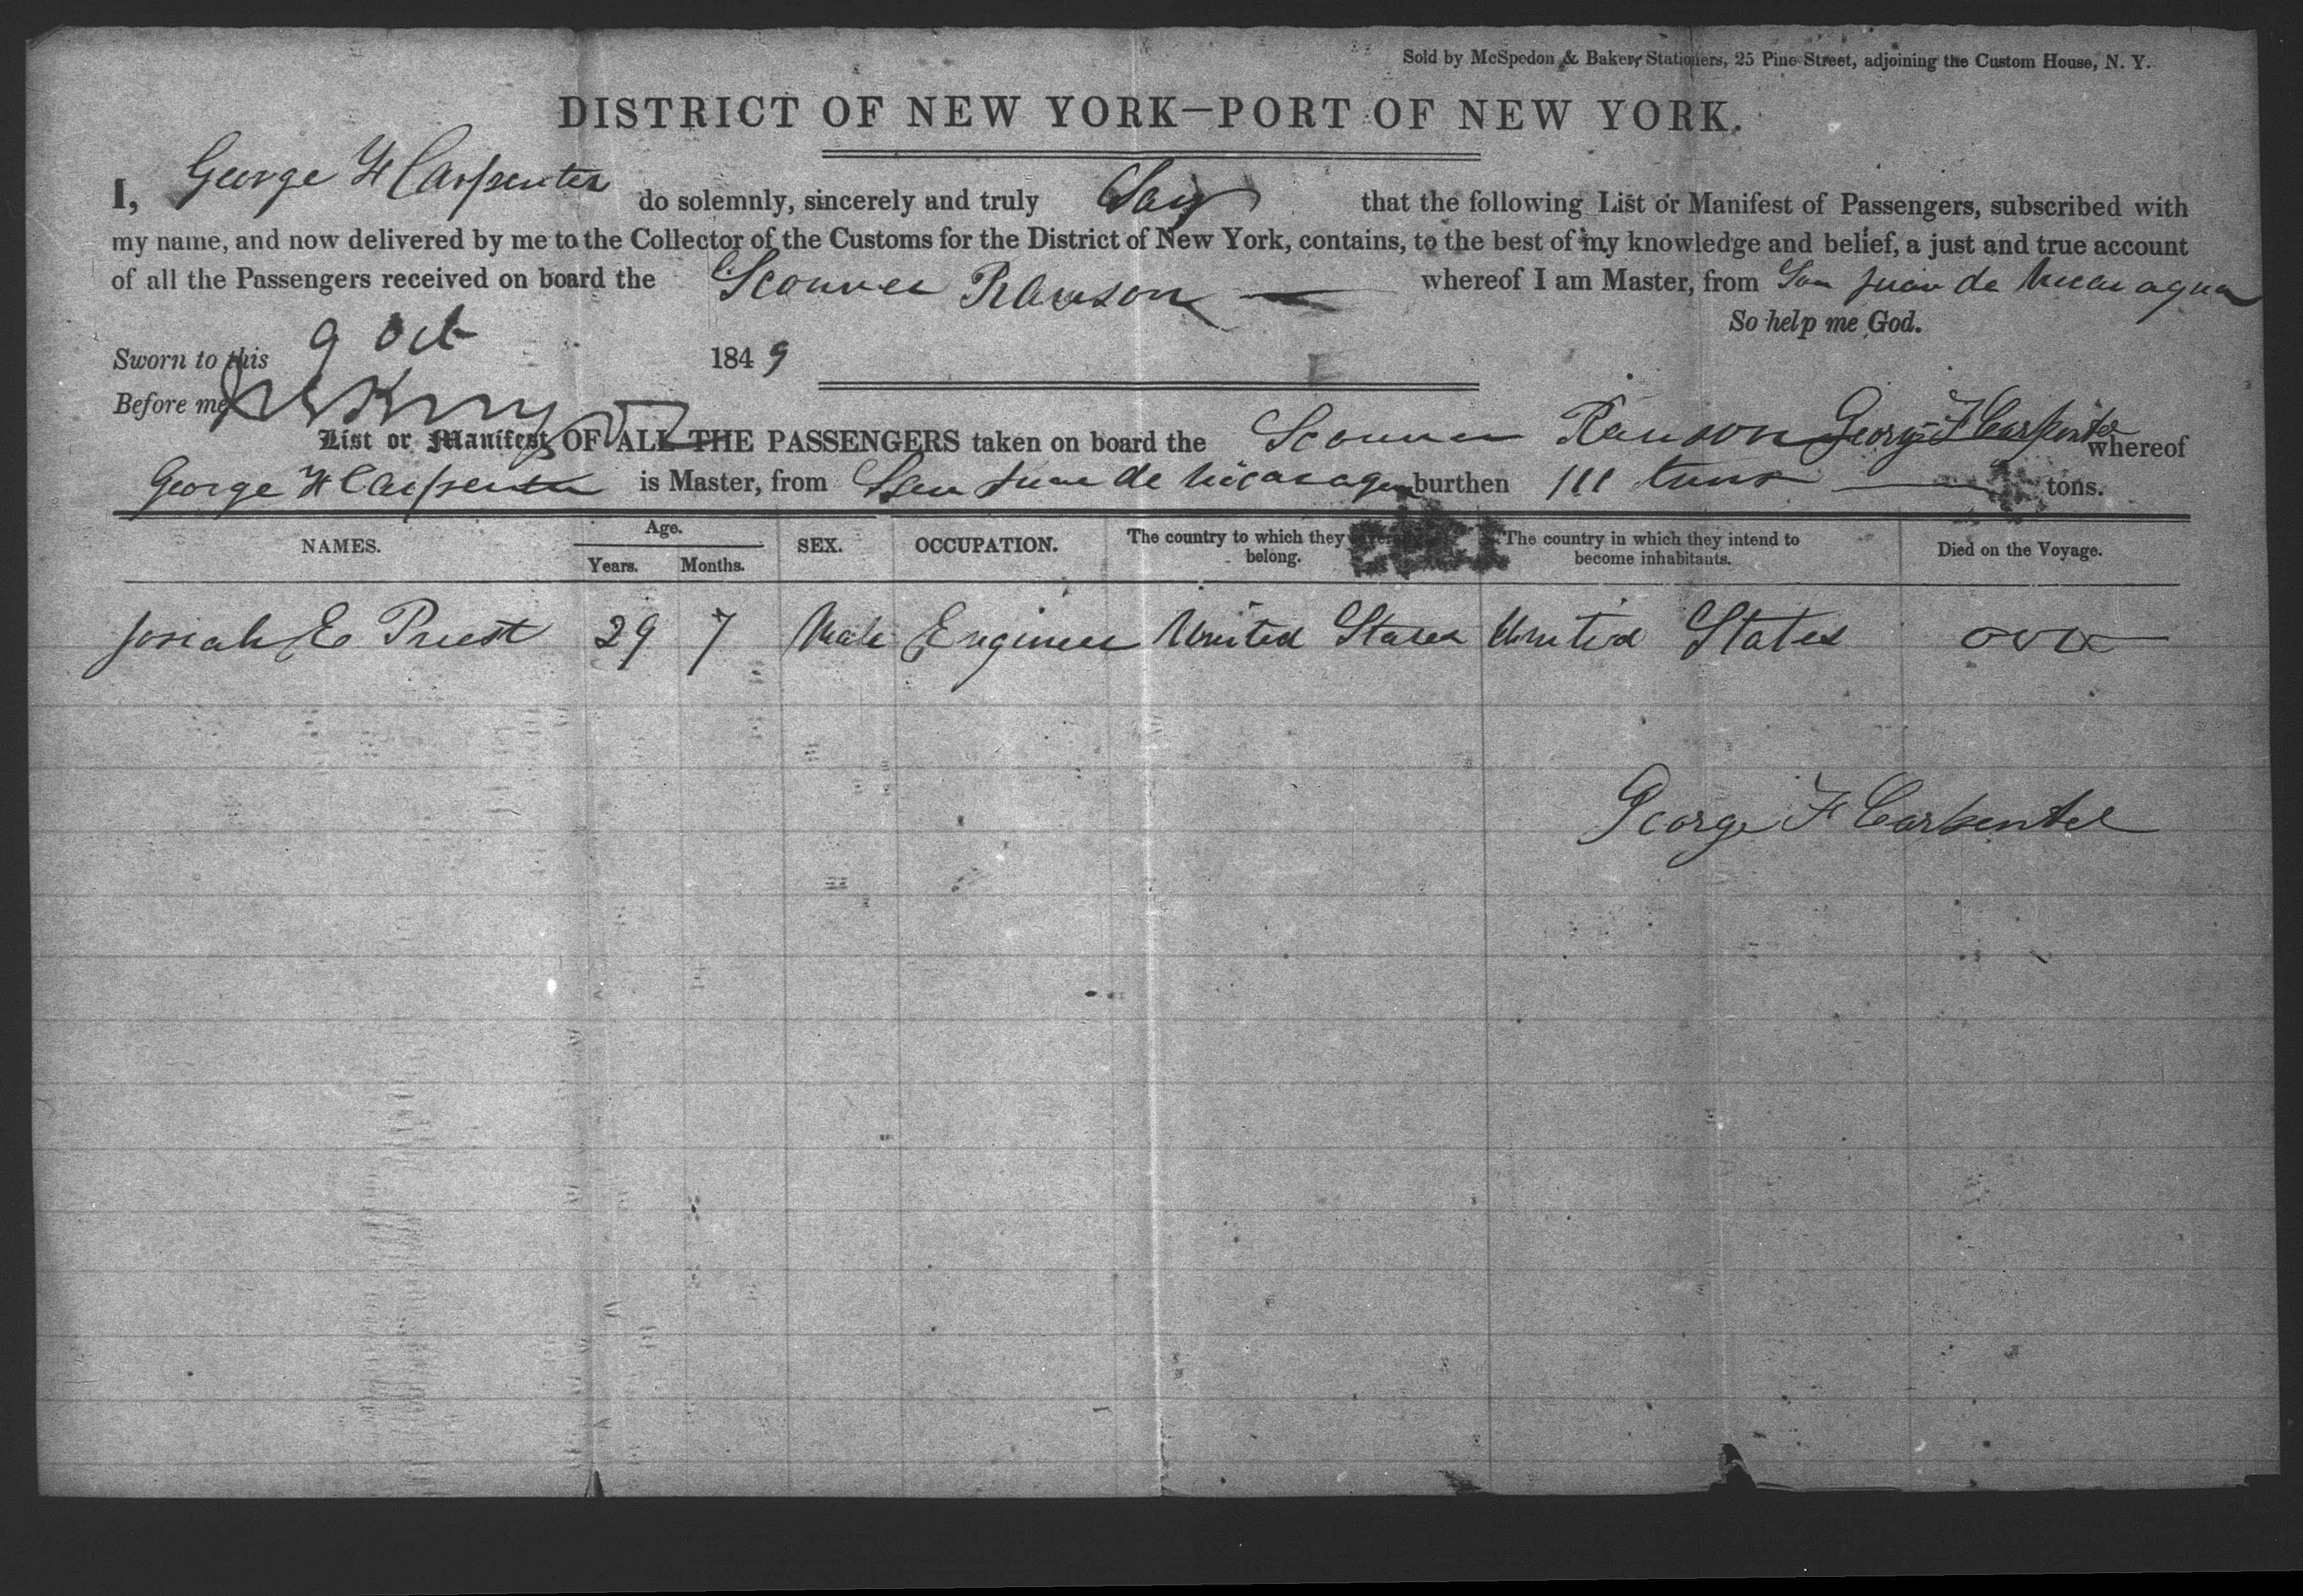 Sold by McSpedon & Baker, Stationers, 25 Pine Street, adjoining the Custom House, N. Y.
DISTRICT OF NEW YORK—PORT OF NEW YORK.
I, George F Carpenter do solemnly, sincerely and truly Say that the following List or Manifest of Passengers, subscribed with
my name, and now delivered by me to the Collector of the Customs for the District of New York, contains, to the best of my knowledge and belief, a just and true account
of all the Passengers received on board the Scouner Rawson whereof I am Master, from San Juan de Nicaragua
So help me God.
Sworn to this 9 Oct 1849
Before me
List or Manifest OF ALL THE PASSENGERS taken on board the Scouner Rawson George F Carpenter whereof
George F Carpenter is Master, from San Juan de Nicaragua burthen 111 tuns tons.
NAMES. Age. Years. Months. SEX. OCCUPATION. The country to which they severally belong. The country in which they intend to become inhabitants. Died on the Voyage.
Josiah E Priest 29 7 Male Engineer United States United States
George F Carpenter